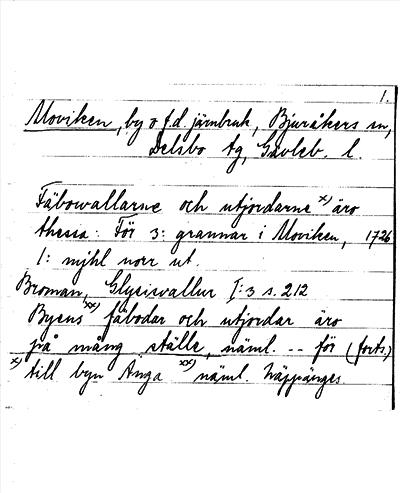 1.
Moviken, by o. f.d. järnbruk, Bjuråkers sn,
Delsbo tg, Gävleb. l.
Fäbowallarne och utjordarne x) äro
thessa: För 3: grannar i Moviken, 1726
1: mÿhl norr ut.
Broman, Glysisvallur I:3 s. 212
Byens xx) fäbodar och utjordar äro
på mång ställe, näml. -- för (forts.)
x) till byn Ånga xx) näml. Näppänges